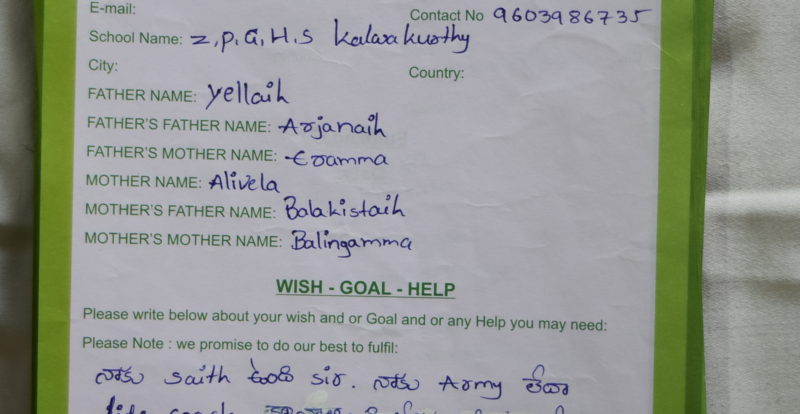 E-mail:
Contact No 9603986735
School Name: Z,P,G,H,S Kalwakurthy
City:
Country:
FATHER NAME: Yellaih
FATHER'S FATHER NAME: Arjanaih
FATHER'S MOTHER NAME: Eramma
MOTHER NAME: Alivela
MOTHER'S FATHER NAME: Balakistaih
MOTHER'S MOTHER NAME: Balingamma
WISH - GOAL - HELP
Please write below about your wish and or Goal and or any Help you may need:
Please Note : we promise to do our best to fulfil:
నాకు saith ఉంది sir. నాకు Army లేదా